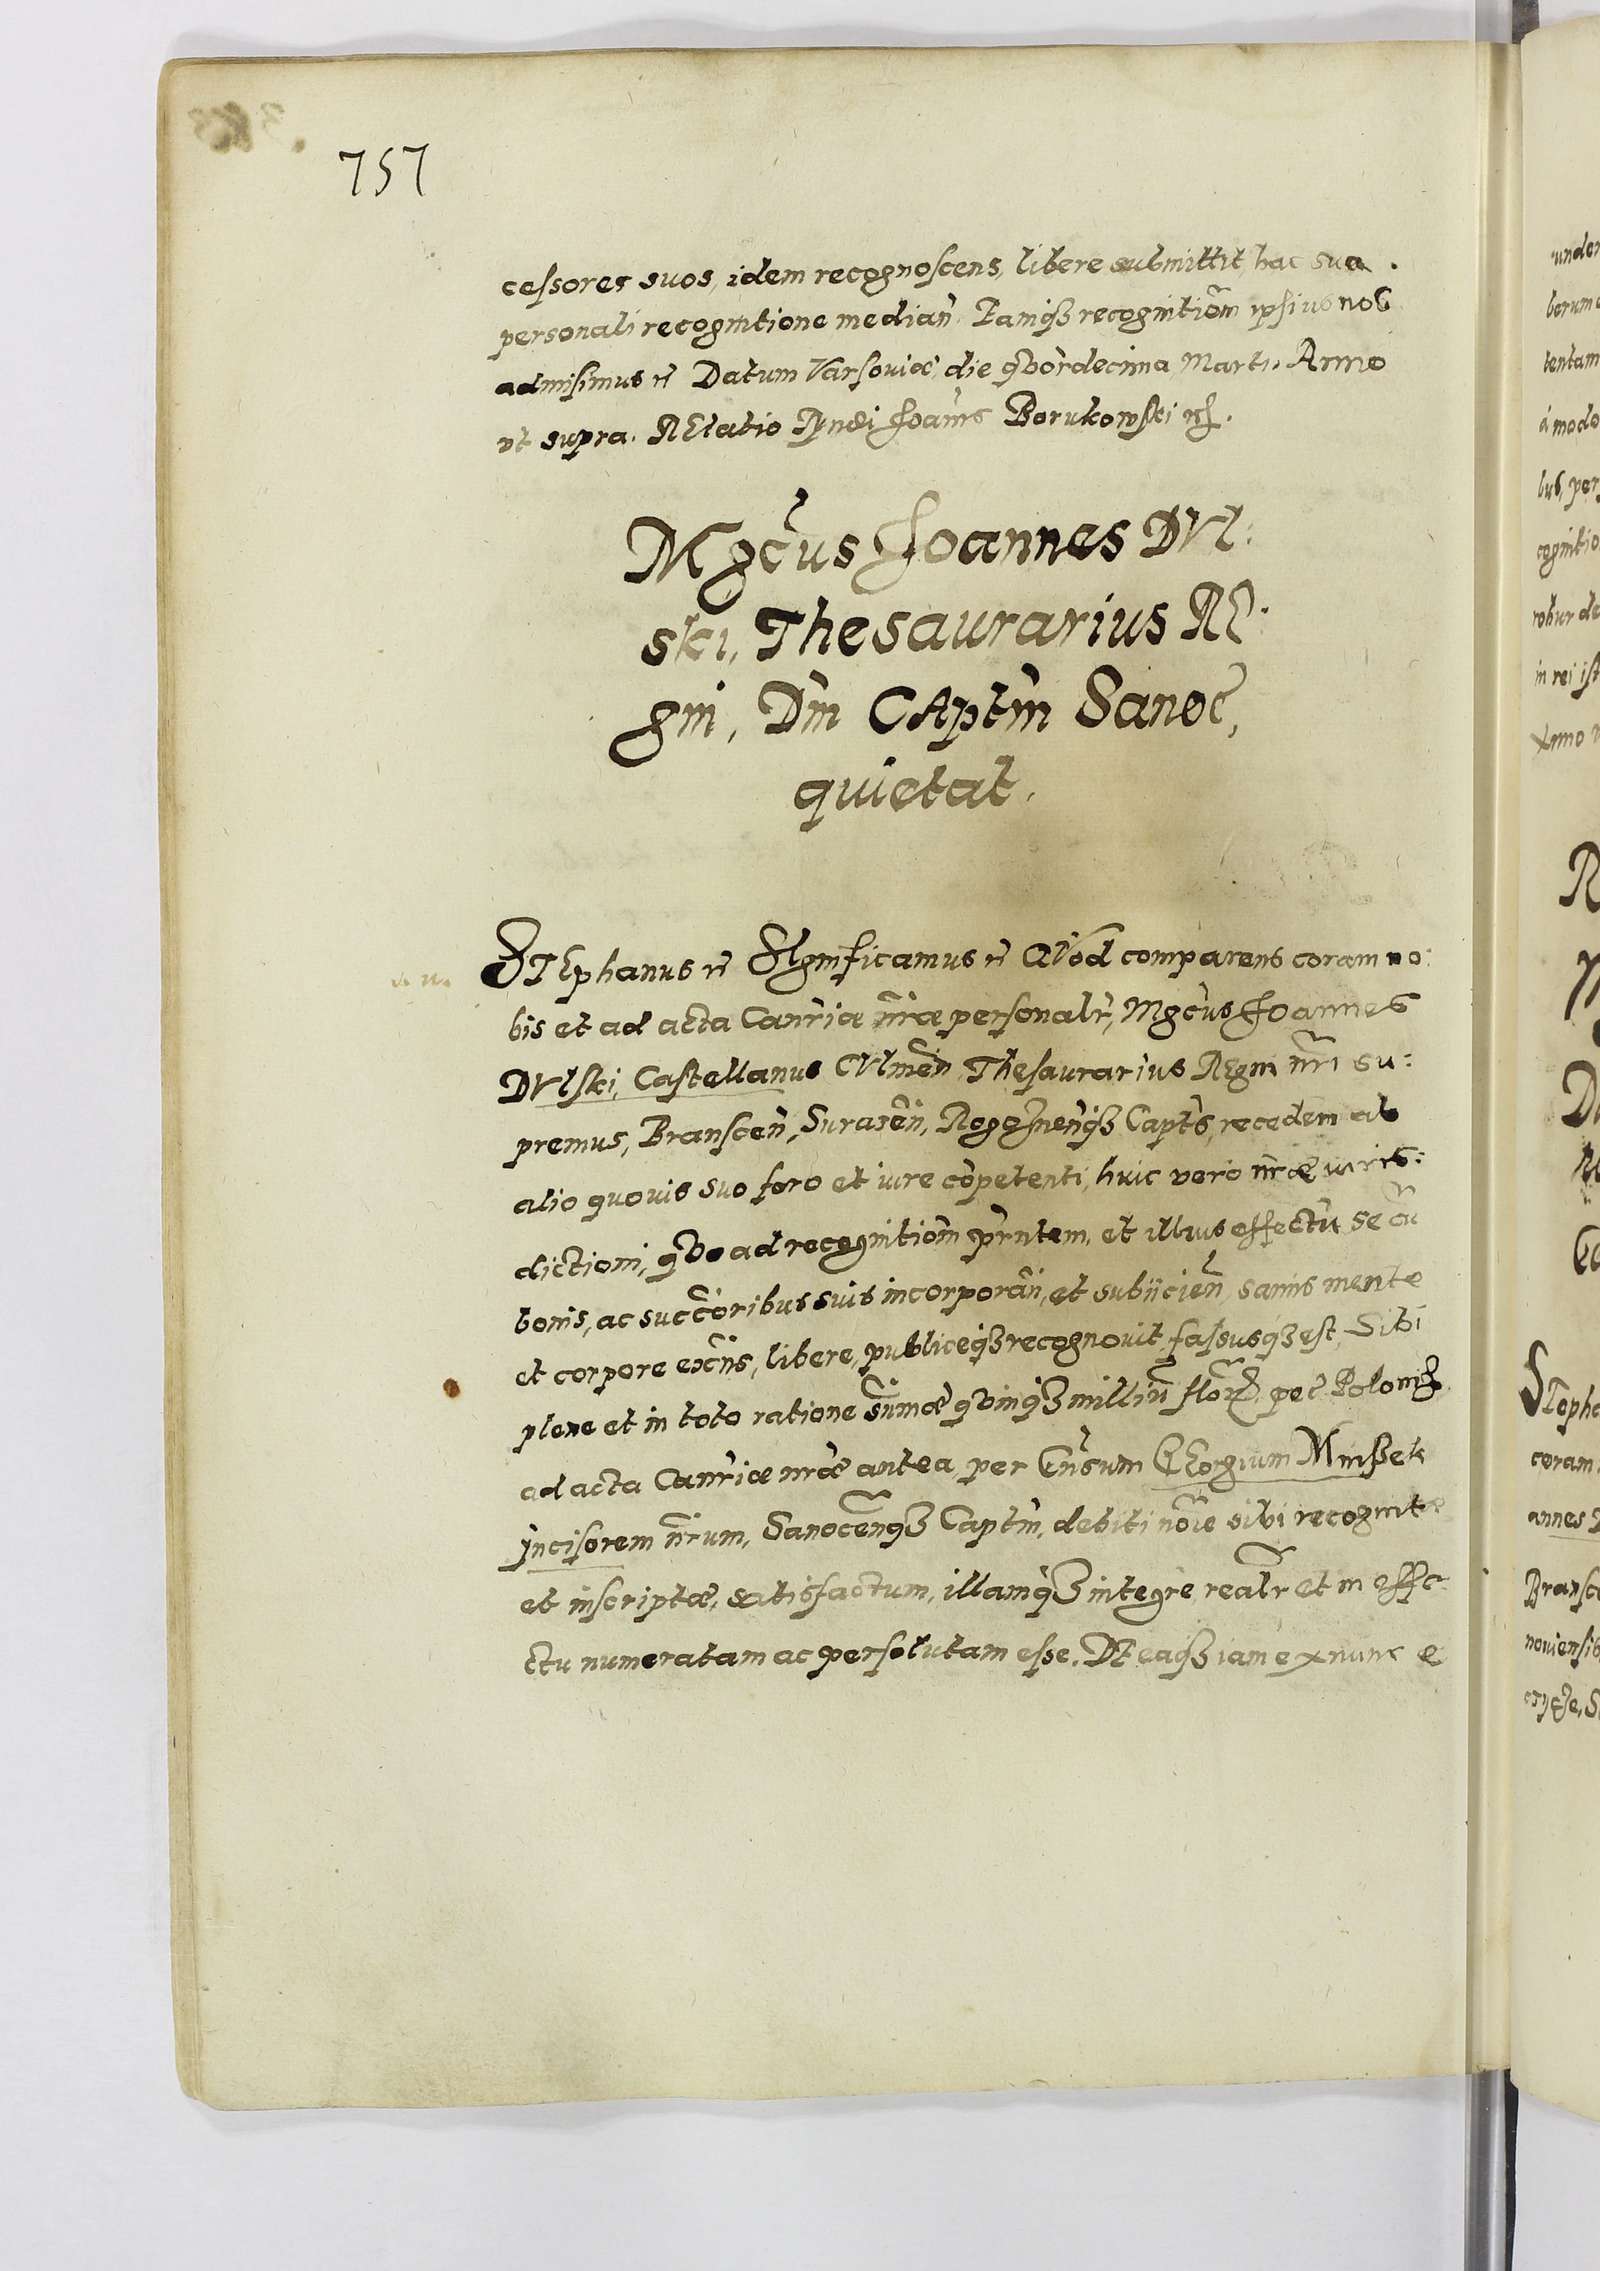 757
cessores suos, idem recognoscens, libere submittit, hac sua
personali recognitione median̄. Eamqȝ recognitiōm ipsius nos
admisimus etc Datum Varsoviæ, die qvordecima, Marti, Anno
vt supra. RElatio Joannis Borukowski etc.
Mgcus Joannes DVl:
ski, Thesaurarius RE:
gni, Dm̄ CAptm̄ Sanoc̄,
quietat.
STEphanus etc SIgnificamus etc QVod comparens coram no:
bis et ad acta Canr̄iæ nr̄æ personalr̄, Mgcus Joannes
DVlski, Castellanus CVlmen̄ Thesaurarius REgni nr̄i su:
premus, Branscen̄, Surasen̄, Rogoznen̄qȝ Capts̄, recedem ab
alio quovis suo foro et iure cōpetenti, huic vero nr̄æ iuris:
dictioni, qvo ad recognitiōm pr̄ntem, et illius effectū se cū
bonis, ac succ̄oribus suis incorporān, et subiicien̄, sanus mente
et corpore exn̄s, libere, publiceqȝ recognovit, fassusqȝ est, Sibi
plene et in toto ratione sūmæ qvinqȝ milliū flor̄ pec̄ Polonic̄
ad acta Canr̄iæ nr̄æ antea per Gn̄sum GEorgium Mnisȝek
Incisorem nr̄um, Sanocen̄qȝ Captm̄, debiti nōie sibi recognitæ
et inscriptæ, satisfactum, illamqȝ integre realr̄ et in effe:
ctu numeratam ac persolutam esse. DE eaqȝ iam ex nunc e